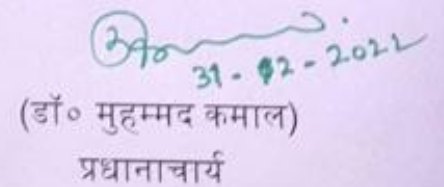 31-12-2022
(डॉ० मुहम्मद कमाल)
प्रधानाचार्य